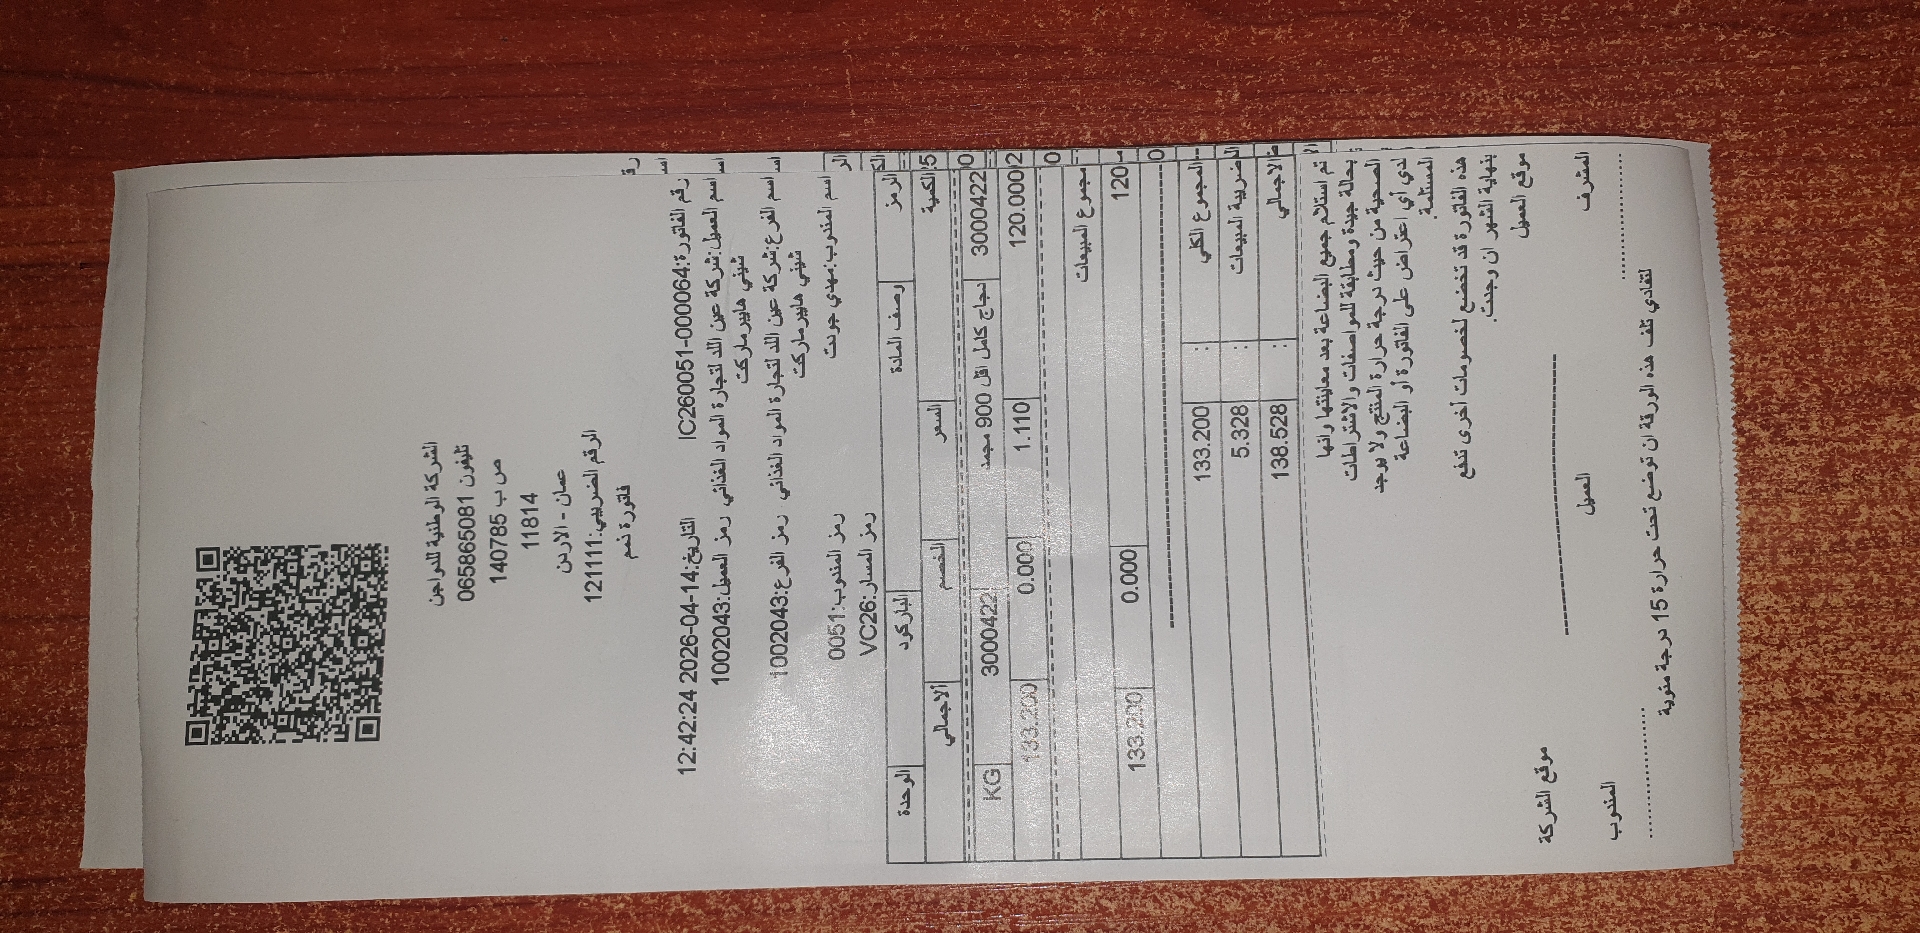 الشركة الوطنية للدواجن
تليفون 065865081
ص ب 140785
11814
عمان - الاردن
الرقم الضريبي:121111
فاتورة ذمم
رقم الفاتورة:IC260051-000064 التاريخ:2026-04-14 12:42:24
اسم العميل:شركة عين اللد لتجارة المواد الغذائي رمز العميل:1002043
شيني هايبر ماركت
اسم الفرع:شركة عين اللد لتجارة المواد الغذائي رمز الفرع:1002043
شيني هايبر ماركت
اسم المندوب:مهدي جودت رمز المندوب:0051
رمز المسار:VC26
الرمز وصف المادة الباركود الوحدة
الكمية السعر الخصم الاجمالي
3000422 دجاج كامل اقل 900 مجمد 3000422 KG
120.000 1.110 0.000 133.200
مجموع المبيعات
120 0.000 133.200
المجموع الكلي : 133.200
ضريبة المبيعات : 5.328
الاجمالي : 138.528
تم استلام جميع البضاعة بعد معاينتها وانها
بحالة جيدة ومطابقة للمواصفات والاشتراطات
الصحية من حيث درجة حرارة المنتج ولا يوجد
لدي أي اعتراض على الفاتورة أو البضاعة
المستلمة.
هذه الفاتورة قد تخضع لخصومات أخرى تدفع
بنهاية الشهر ان وجدت.
موقع العميل
موقع الشركة
المشرف العميل المندوب
لتفادي تلف هذه الورقة ان توضع تحت حرارة 15 درجة مئوية